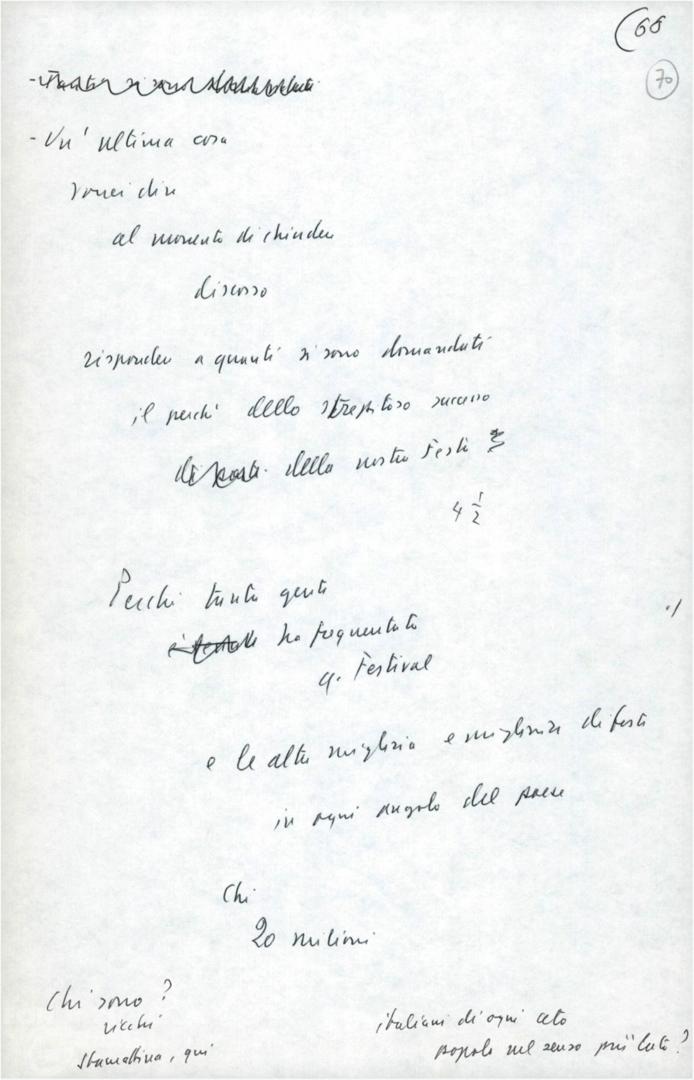 (68
70
- Un' ultima cosa
vorrei dire
al momento di chiudere
discorso
rispondere a quanti si sono domandati
il perché dello strepitoso successo
della nostra Festa
4 1/2
Perché tanta gente
./
ha frequentato
q. Festival
e le altre migliaia e migliaia di feste
in ogni angolo del paese
Chi
20 milioni
Chi sono?
ricchi
stamattina, qui
italiani di ogni ceto
popolo nel senso più lato?